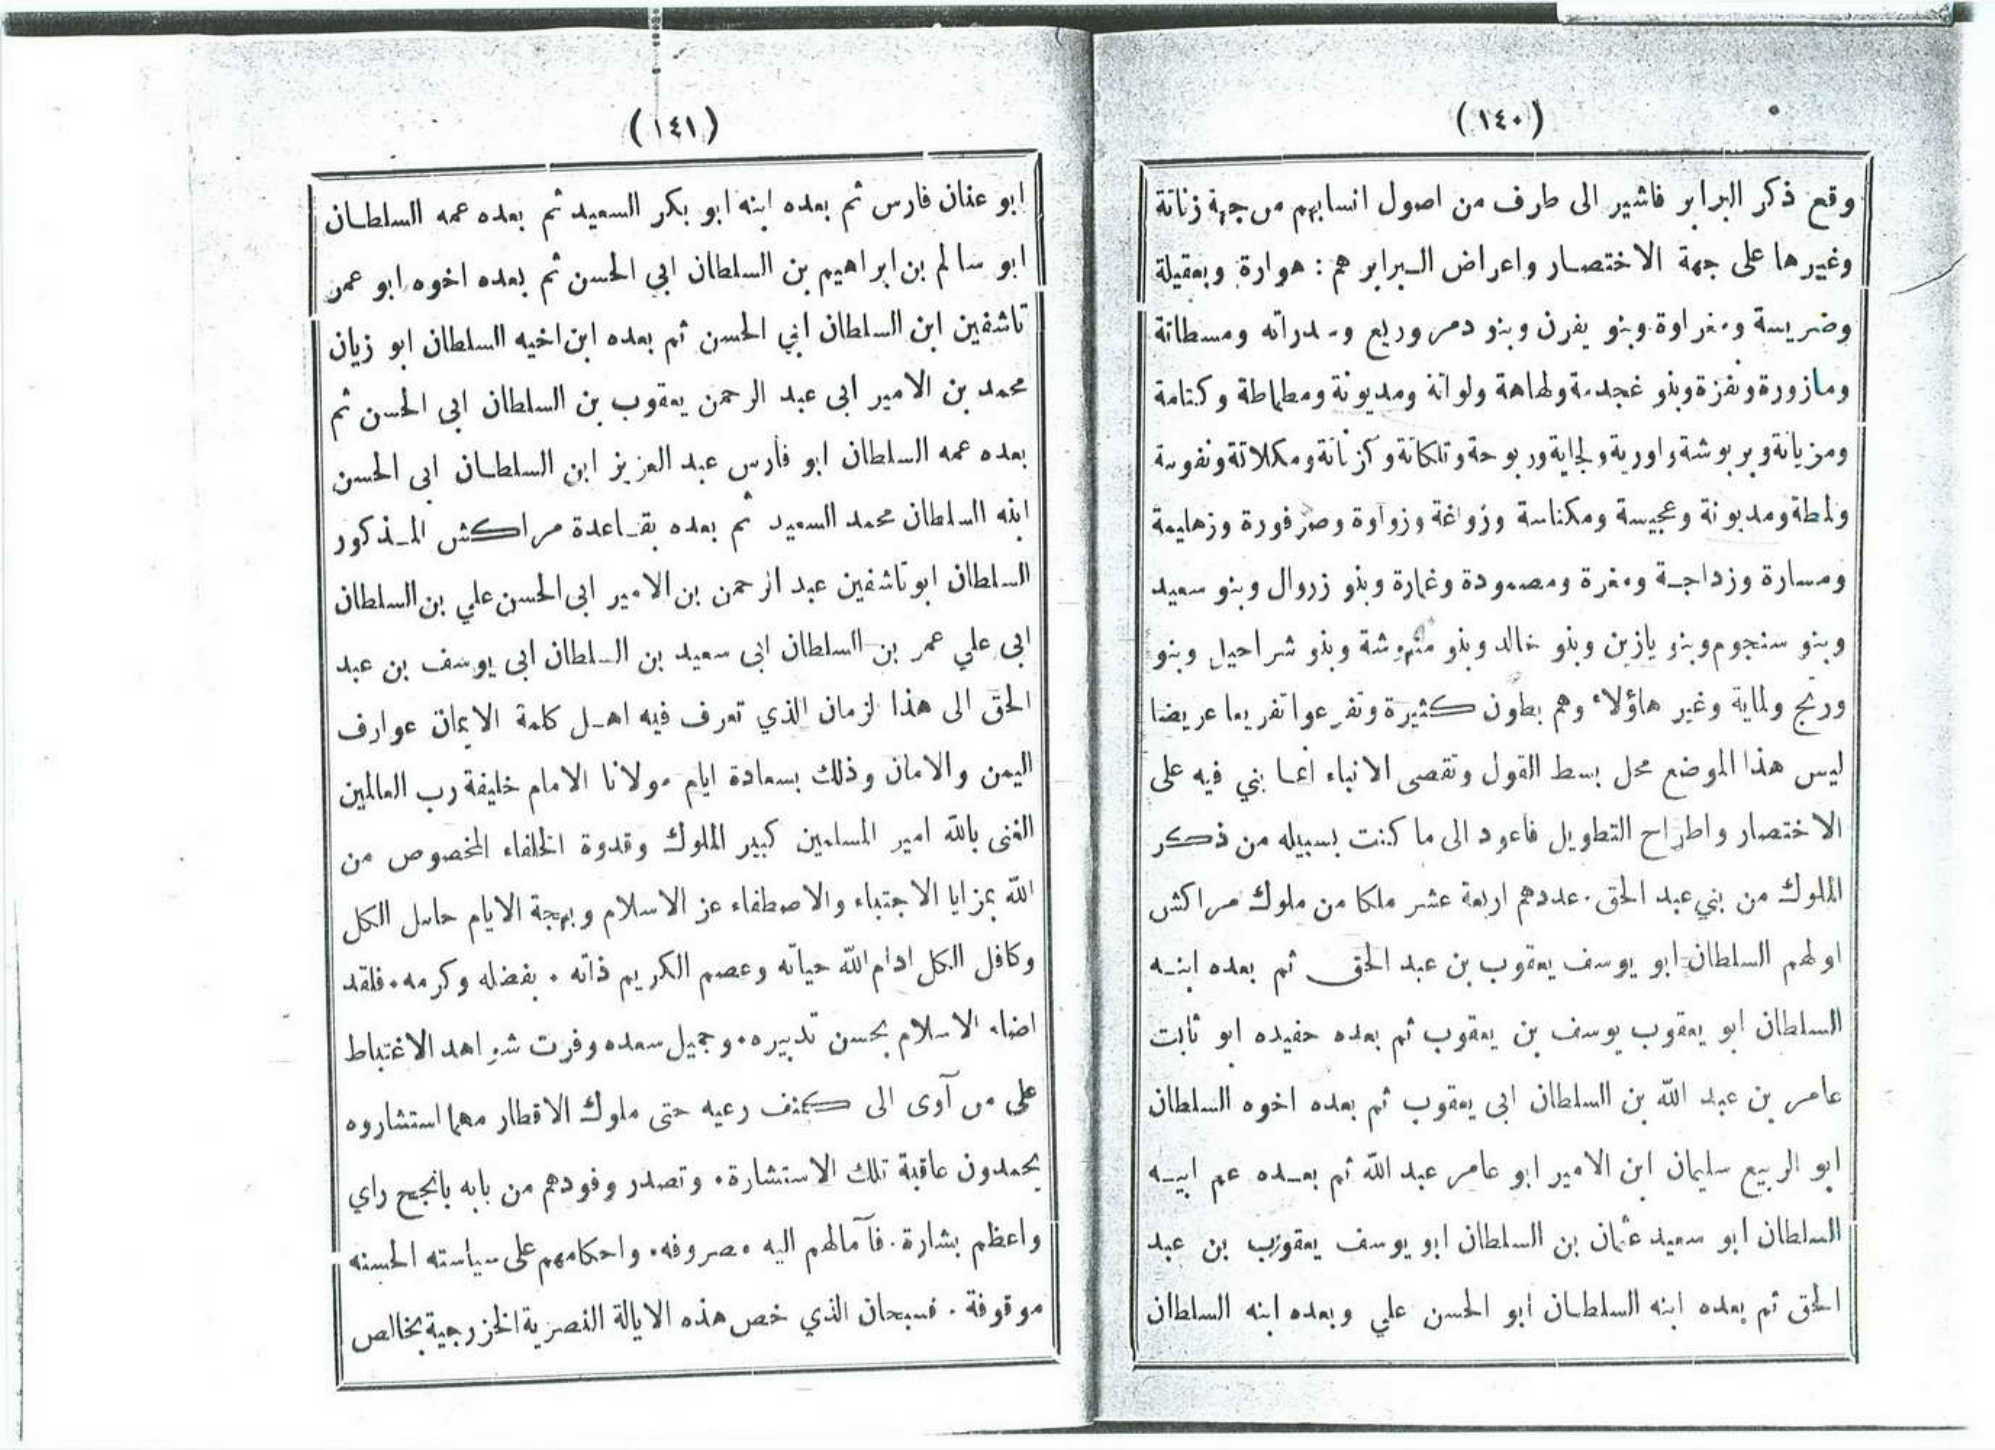 (١٤٠)
وقع ذكر البرابر فاشير الى طرف من اصول انسابهم من جهة زناتة
وغيرها على جهة الاختصار واعراض البرابر هم : هوارة وبعقيلة
وضريسة ومغراوة وبنو يفرن وبنو دمر وريع وسدراته ومسطاتة
ومازورة ونفزة وبنو غجدمة ولهاهة ولواتة ومديونة ومطماطة وكتامة
ومزياتة وبربوشة واورية ولجاية وربوحة وتلكاتة وكزناتة ومكلاتة ونفوسة
ولمطة ومدبونة وعجيسة ومكناسة وزواغة وزواوة وصرفورة وزهليمة
ومسارة وزداجة ومغرة ومصمودة وغمارة وبنو زروال وبنو سعيد
وبنو سنجوم وبنو يازين وبنو خالد وبنو وبنو شراحيل وبنو
ورنج ولماية وغير هاؤلاء وهم بطون كثيرة وتفرعوا تفريعا عريضا
ليس هذا الموضع محل بسط القول وتقصى الانباء انما بني فيه على
الاختصار واطراح التطويل فاعود الى ما كنت بسبيله من ذكر
الملوك من بني عبد الحق . عددهم اربعة عشر ملكا من ملوك مراكش
اولهم السلطان ابو يوسف يعقوب بن عبد الحق ثم بعده ابنه
السلطان ابو يعقوب يوسف بن يعقوب ثم بعده حفيده ابو ثابت
عامر بن عبد الله بن السلطان ابى يعقوب ثم بعده اخوه السلطان
ابو الربيع سليمان ابن الامير ابو عامر عبد الله ثم بعده عم ابيه
السلطان ابو سعيد عثمان بن السلطان ابو يوسف يعقوب بن عبد
الحق ثم بعده ابنه السلطان ابو الحسن علي وبعده ابنه السلطان
(١٤١)
ابو عنان فارس ثم بعده ابنه ابو بكر السعيد ثم بعده عمه السلطان
ابو سالم بن ابراهيم بن السلطان ابي الحسن ثم بعده اخوه ابو عمر
تاشفين ابن السلطان ابي الحسن ثم بعده ابن اخيه السلطان ابو زيان
محمد بن الامير ابى عبد الرحمن يعقوب بن السلطان ابى الحسن ثم
بعده عمه السلطان ابو فارس عبد العزيز ابن السلطان ابى الحسن
ابنه السلطان محمد السعيد ثم بعده بقاعدة مراكش المذكور
السلطان ابو تاشفين عبد الرحمن بن الامير ابى الحسن علي بن السلطان
ابى علي عمر بن السلطان ابى سعيد بن السلطان ابى يوسف بن عبد
الحق الى هذا لزمان الذي تعرف فيه اهل كلمة الايمان عوارف
اليمن والامان وذلك بسعادة ايام مولانا الامام خليفة رب العالمين
الغنى بالله امير المسلمين كبير الملوك وقدوة الخلفاء المخصوص من
الله بمزايا الاجتباء والاصطفاء عز الاسلام وبهجة الايام حامل الكل
وكافل الكل ادام الله حياته وعصم الكريم ذاته . بفضله وكرمه . فلقد
اضاء الاسلام بحسن تدبيره . وجميل سعده وفرت شواهد الاغتباط
على من آوى الى كنف رعيه حتى ملوك الاقطار مهما استشاروه
يحمدون عاقبة تلك الاستشارة . وتصدر وفودهم من بابه بانجح راي
واعظم بشارة . فآمالهم اليه مصروفه . واحكامهم على سياسته الحسنه
موقوفة . فسبحان الذي خص هذه الايالة النصرية الخزرجية بخالص